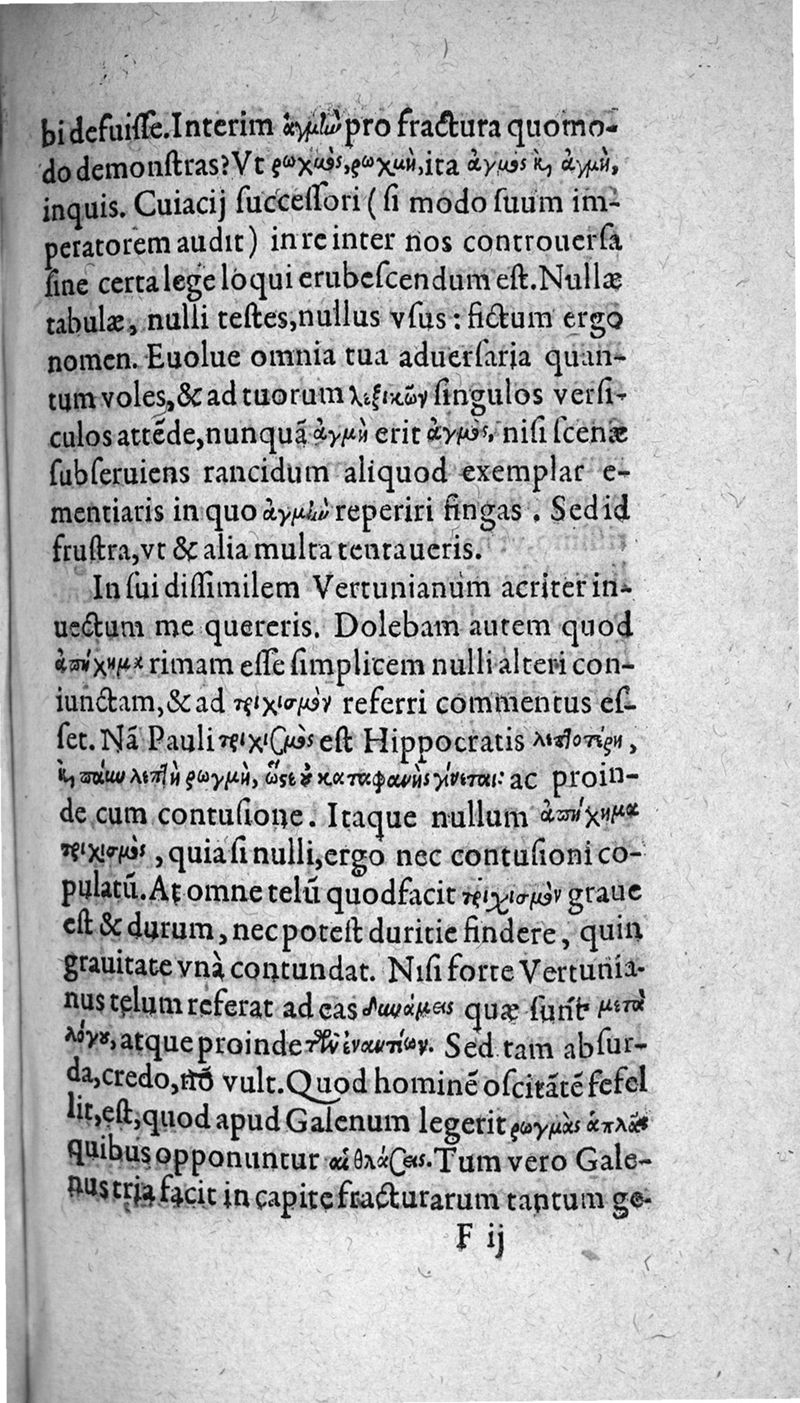 bi defuisſe. Interim ἀγμὼ pro fractura quomo-
do demonſtras? Vt ρωχμὸς, ρωχμὴ, ita ἀγμὸς καὶ ἀγμὴ,
inquis. Cuiacij ſucceſſori (ſi modo ſuum im-
peratorem audit) in re inter nos controuerſa
ſine certa lege loqui erubeſcendum eſt. Nullæ
tabulæ, nulli teſtes, nullus vſus: fictum ergo
nomen. Euolue omnia tua aduerſaria quan-
tum voles, & ad tuorum λεξικῶν ſingulos verſi-
culos attẽde, nunquã ἀγμὴ erit ἀγμὸς, niſi ſcenæ
ſubſeruiens rancidum aliquod exemplar e-
mentiaris in quo ἀγμὼ reperiri fingas. Sed id
fruſtra, vt & alia multa tentaueris.
In ſui diſſimilem Vertunianum acriter in-
uectum me quereris. Dolebam autem quod
ἀπήχημα rimam eſſe ſimplicem nulli alteri con-
iunctam, & ad τριχισμὸν referri commentus eſ-
ſet. Nã Pauli τριχισμὸς eſt Hippocratis λεπτοτέρη,
καὶ πάνυ λεπτὴ ρωγμὴ, ὥστε οὐ καταφανὴς γίνεται: ac proin-
de cum contuſione. Itaque nullum ἀπήχημα
τριχισμὸς, quia ſi nulli, ergo nec contuſioni co-
pulatũ. At omne telũ quod facit τριχισμὸν graue
eſt & durum, nec poteſt duritie findere, quin
grauitate vnà contundat. Niſi forte Vertunia-
nus telum referat ad eas δυνάμεις quæ ſunt μετὰ
λόγου, atque proinde τῶν ἐναντίων. Sed tam abſur-
da, credo, nõ vult. Quod hominẽ oſcitãtẽ fefel
lit, eſt, quod apud Galenum legerit ρωγμὰς ἁπλᾶς
quibus opponuntur αἱ θλάσεις. Tum vero Gale-
nus tria facit in capite fracturarum tantum ge-
F ij